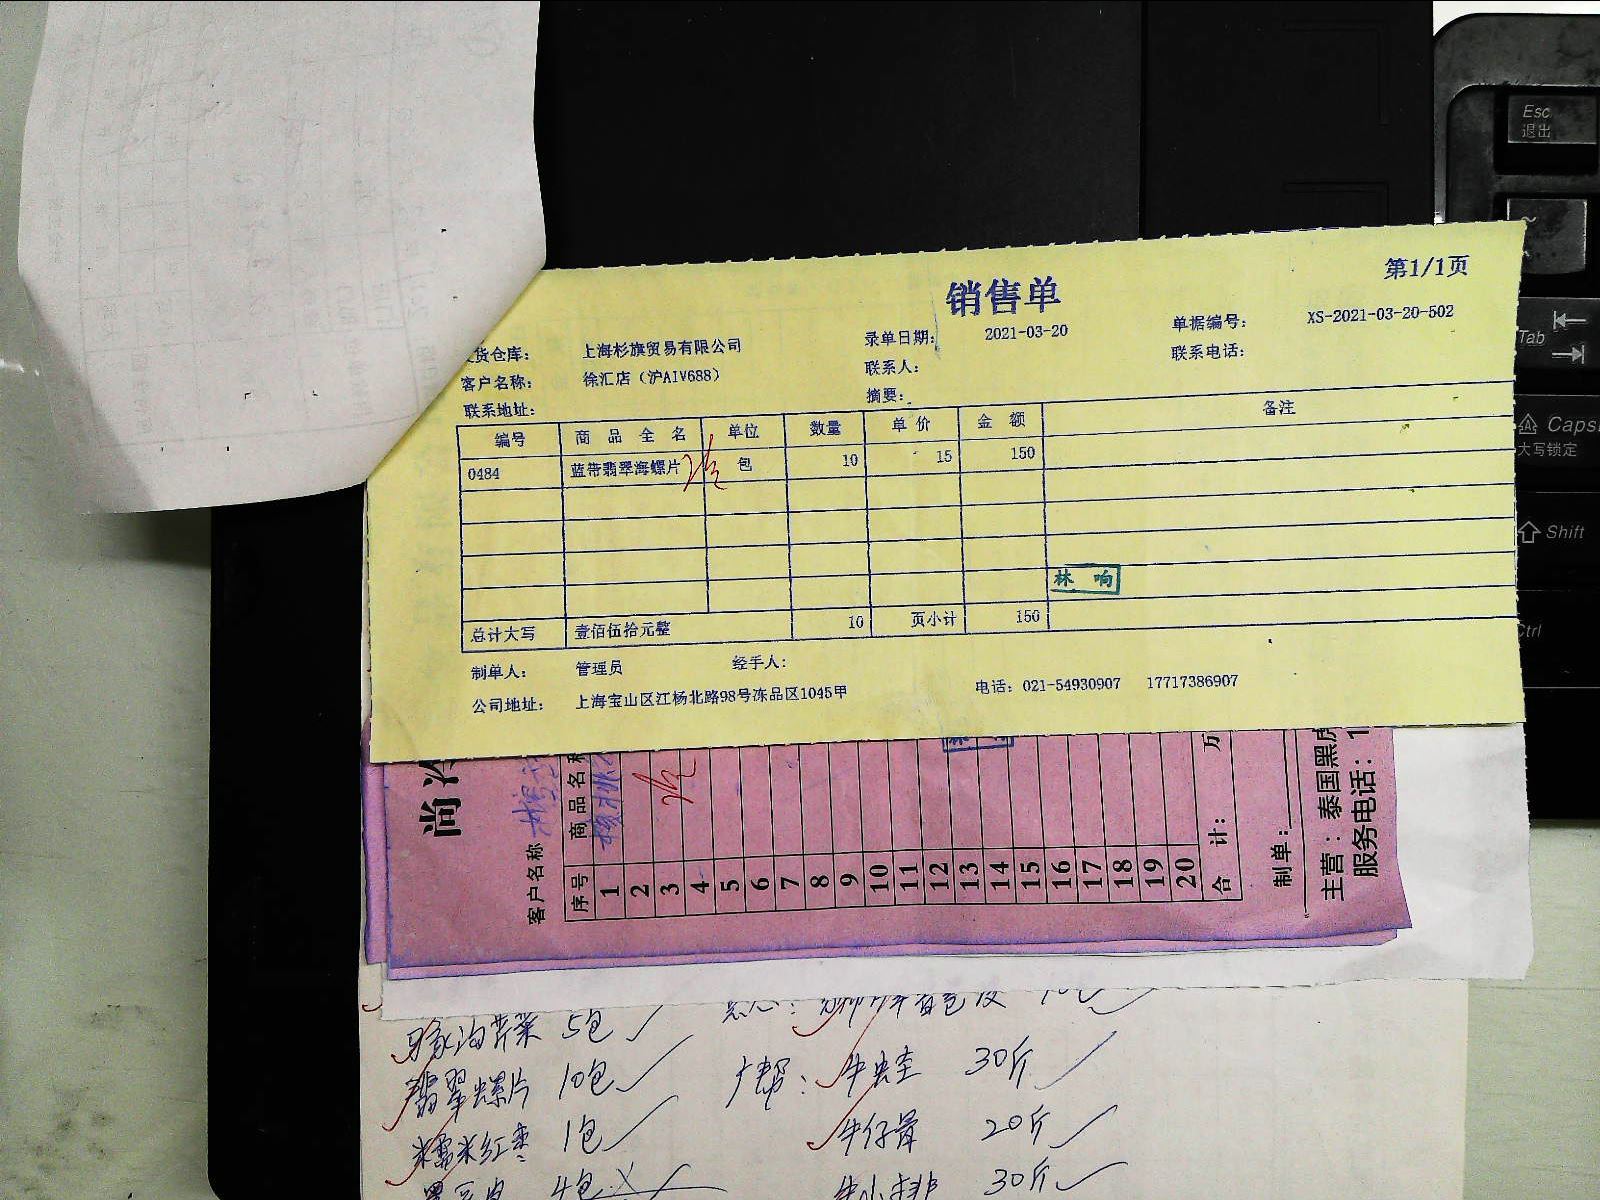 销售单
第1/1页
货仓库： 上海杉旗贸易有限公司 录单日期： 2021-03-20 单据编号： XS-2021-03-20-502
客户名称： 徐汇店（沪AIV688） 联系人： 联系电话：
联系地址： 摘要：
编号 商品全名 单位 数量 单价 金额 备注
0484 蓝带翡翠海螺片 包 10 15 150
林响
总计大写 壹佰伍拾元整 10 页小计 150
制单人： 管理员 经手人：
公司地址： 上海宝山区江杨北路98号冻品区1045甲 电话：021-54930907 17717386907
尚
客户名称
序号 商品名称
1
2
3
4
5
6
7
8
9
10
11
12
13
14
15
16
17
18
19
20
合计： 万
制单：
主营：泰国黑虎
服务电话：1
海芹菜 5包
翡翠螺片 10包
糯米红枣 1包
4包
30斤
牛仔骨 20斤
牛小排 30斤
Esc
退出
~
Tab
Caps
大写锁定
Shift
Ctrl